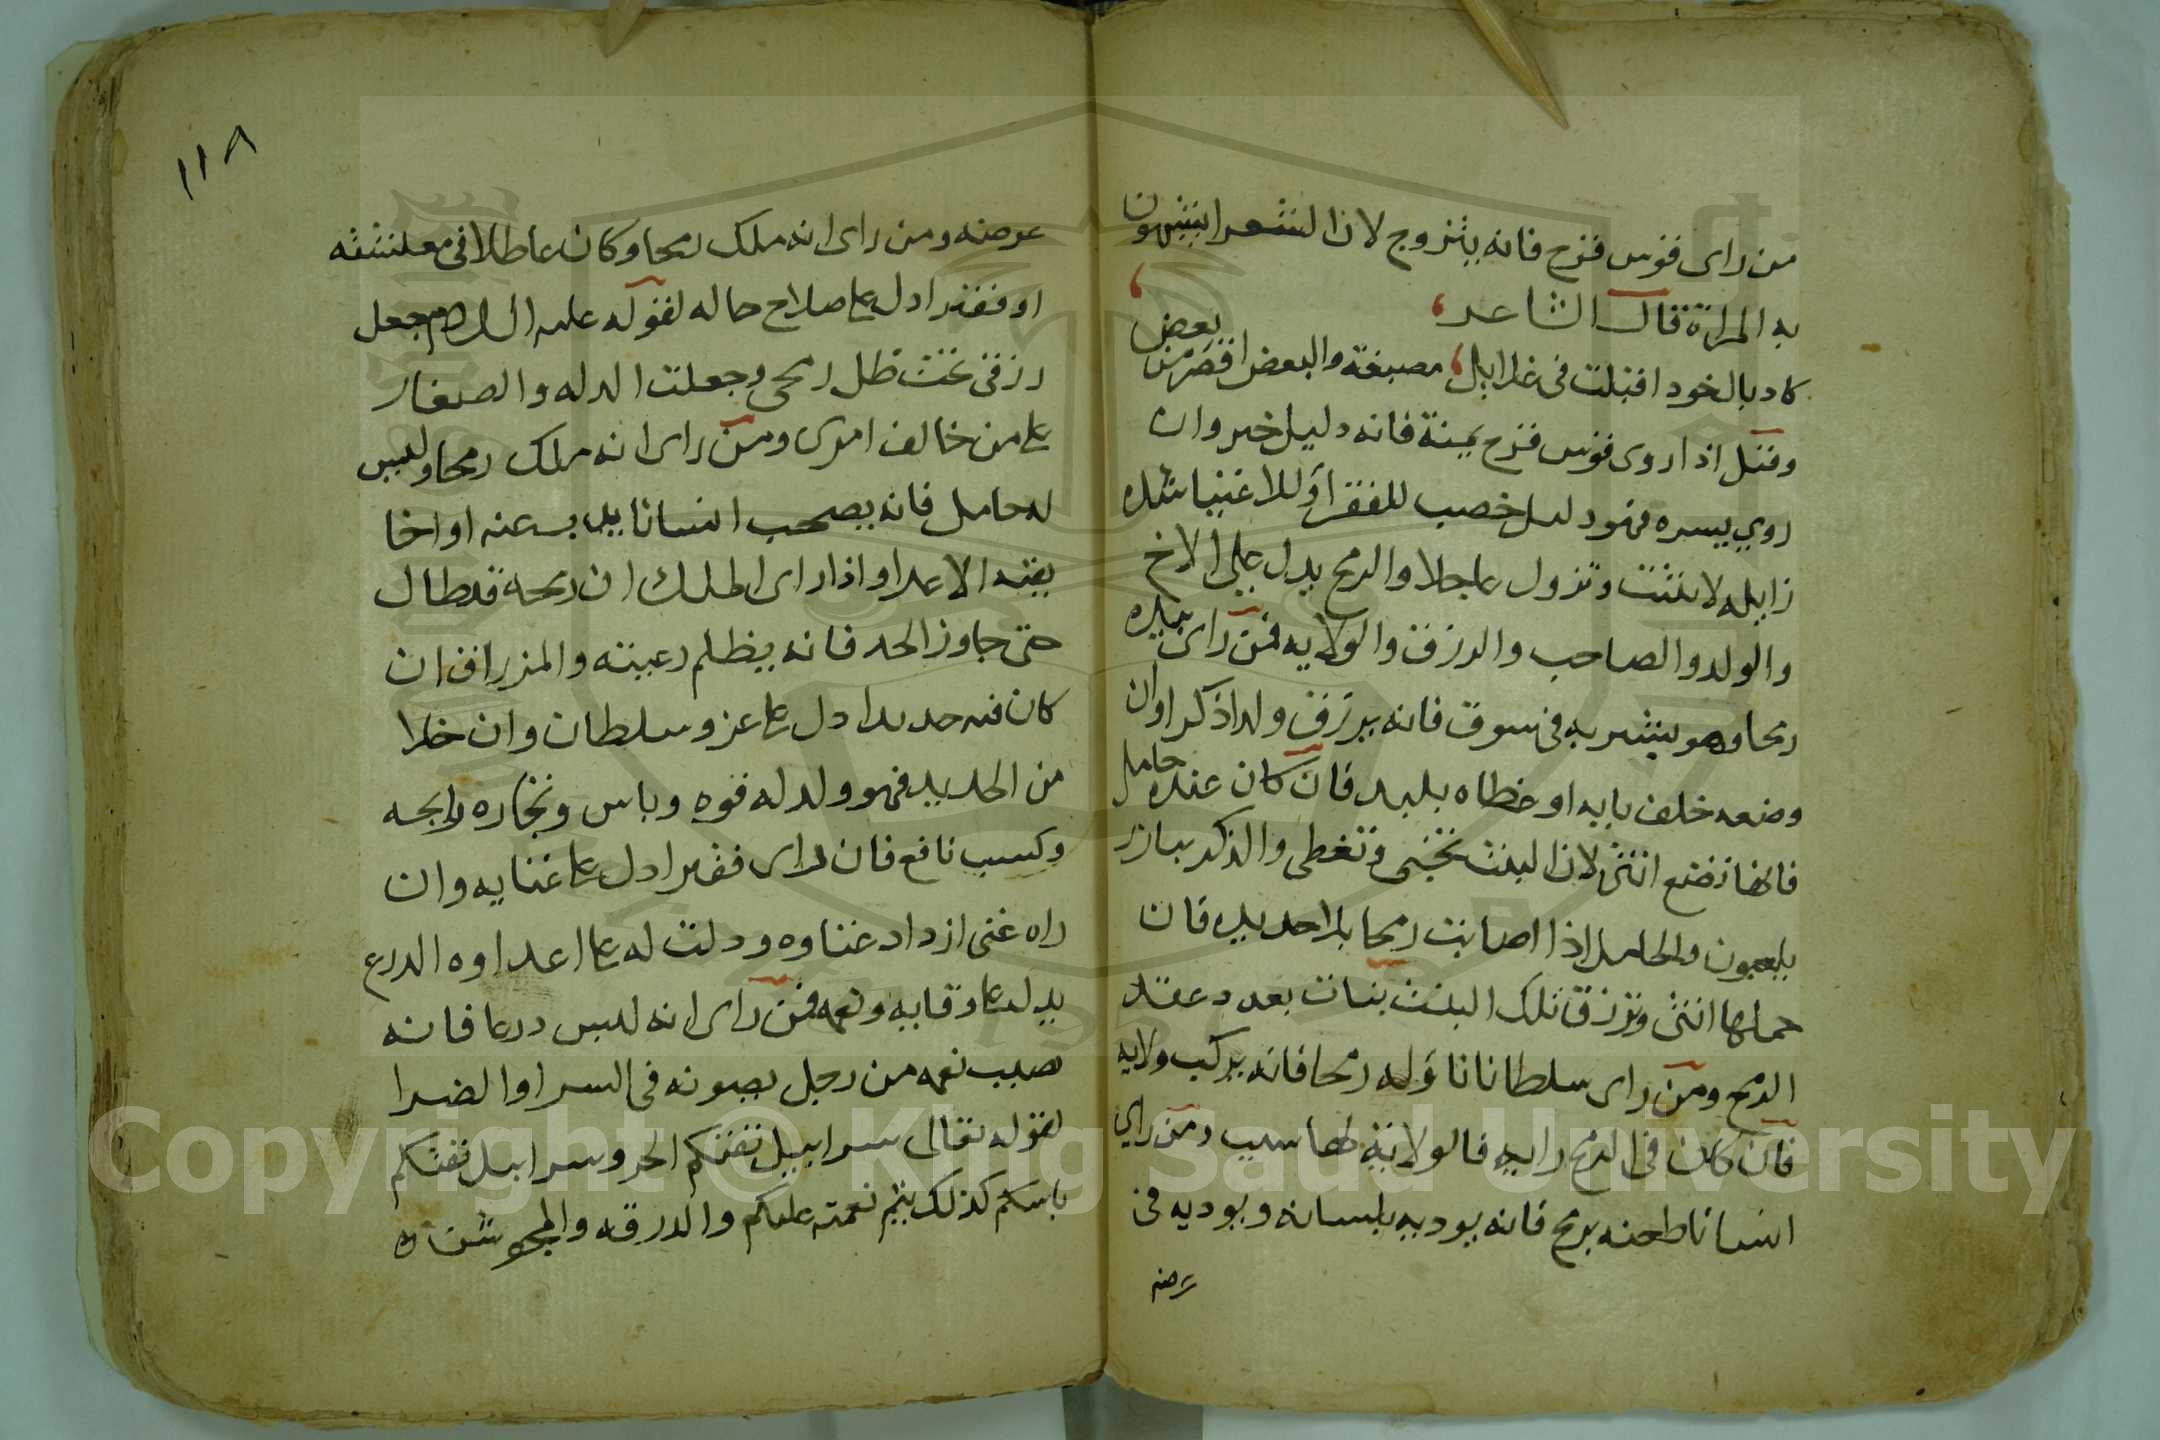 من راى قوس قزح فانه يتزوج لان الشعرا يشبهون
به المراة قال الشاعر
كاد بالخود اقبلت فى غلايل مصبغة والبعض اقصر من بعض
وقيل اذا روى قوس قزح يمينة فانه دليل خير وان
روي يسره فهو دليل خصب للفقرا وللاغنيا شده
زايله لا تثبت وتزول عاجلا والرمح يدل على الاخ
والولد والصاحب والرزق والولايه فمن راى بيده
رمحا وهو يشير به فى سوق فانه يرزق ولدا ذكرا وان
وضعه خلف بابه او غطاه بلبد فان كان عنده حامل
فانها تضع انثى لان البنت تختبى وتغطى والذكر يبارز
يلعبون والحامل اذا اصابت رمحا بلا حديده فان
حملها انثى وترزق تلك البنت بنات بعدد عقد
الرمح ومن راى سلطانا ناوله رمحا فانه يركب ولايه
فان كان فى الرمح رايه فالولاية لها سيب ومن راي
انسانا طعنه برمح فانه يوديه بلسانه ويوديه فى
عرضه
١١٨
عرضه ومن راى انه ملك رمحا وكان عاطلا فى معيشته
او فقيرا دل على صلاح حاله لقوله عليه السلام جعل
رزقى تحت ظل رمحى وجعلت الذله والصغار
على من خالف امرى ومن راى انه ملك رمحا وليس
له حامل فانه يصحب انسانا يدب عنه او اخا
يقيه الاعدا واذا راى الملك ان رمحه قد طال
حتى جاوز الحد فانه يظلم رعيته والمزراق ان
كان فيه حديدا دل على عز وسلطان وان خلا
من الحديد فهو ولد له قوه وباس وتجاره رابحه
وكسب نافع فان راى فقيرا دل على غنايه وان
راه غنى ازداد غناوه ودلت له على اعداوه الدرع
يدل على وقايه ونعمه فمن راى انه لبس درعا فانه
نصيب نعمه من رجل يصونه فى السرا والضرا
لقوله تعالى سرابيل تقيكم الحر وسرابيل تقيكم
باسكم كذلك يتم نعمته عليكم والدرقه والجوشن
Copyright © King Saud University